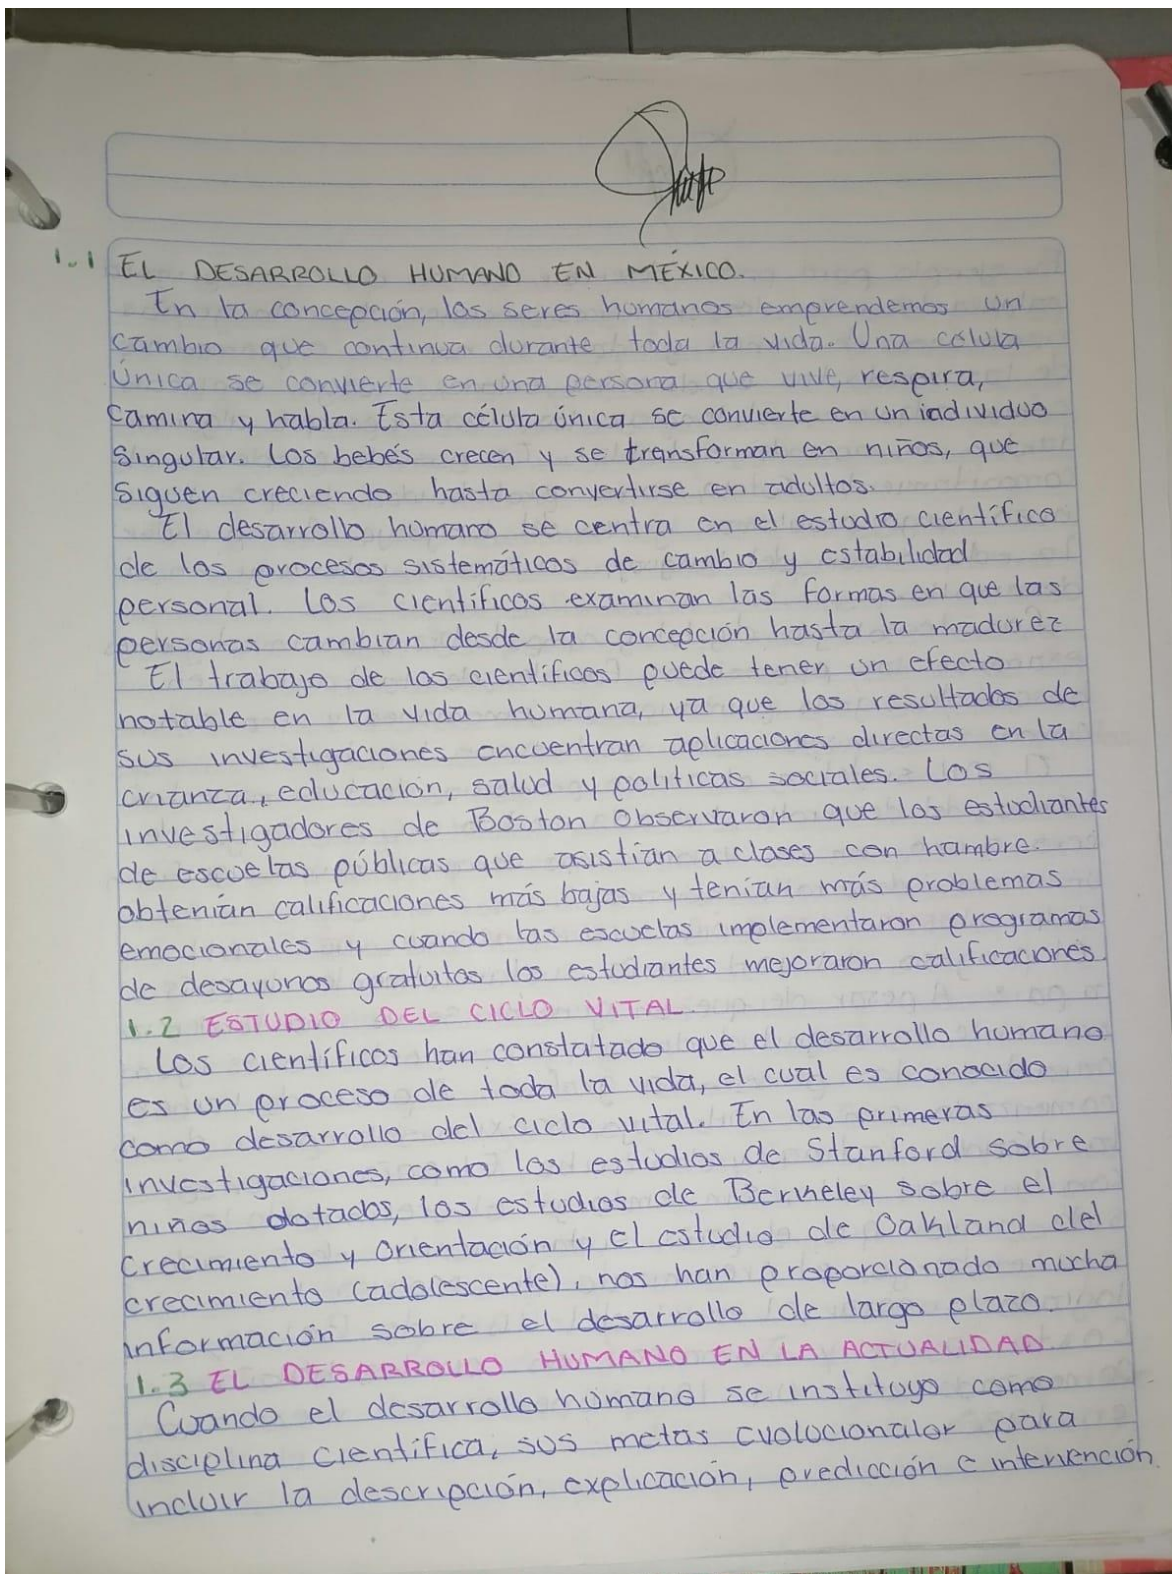 1.1 EL DESARROLLO HUMANO EN MÉXICO.
En la concepción, los seres humanos emprendemos un
cambio que continua durante toda la vida. Una célula
única se convierte en una persona que vive, respira,
camina y habla. Esta célula única se convierte en un individuo
singular. Los bebés crecen y se transforman en niños, que
siguen creciendo hasta convertirse en adultos.
El desarrollo humano se centra en el estudio científico
de los procesos sistemáticos de cambio y estabilidad
personal. Los científicos examinan las formas en que las
personas cambian desde la concepción hasta la madurez
El trabajo de los científicos puede tener un efecto
notable en la vida humana, ya que los resultados de
sus investigaciones encuentran aplicaciones directas en la
crianza, educación, salud y políticas sociales. Los
investigadores de Boston observaron que los estudiantes
de escuelas públicas que asistían a clases con hambre.
obtenían calificaciones más bajas y tenían más problemas
emocionales y cuando las escuelas implementaron programas
de desayunos gratuitos los estudiantes mejoraron calificaciones
1.2 ESTUDIO DEL CICLO VITAL.
Los científicos han constatado que el desarrollo humano
es un proceso de toda la vida, el cual es conocido
como desarrollo del ciclo vital. En las primeras
investigaciones, como los estudios de Stanford sobre
niños dotados, los estudios de Berkeley sobre el
crecimiento y orientación y el estudio de Oakland del
crecimiento (adolescente), nos han proporcionado mucha
información sobre el desarrollo de largo plazo.
1.3 EL DESARROLLO HUMANO EN LA ACTUALIDAD
Cuando el desarrollo humano se instituyo como
disciplina científica, sus metas evolucionalor para
incluir la descripción, explicación, predicción e intervención.